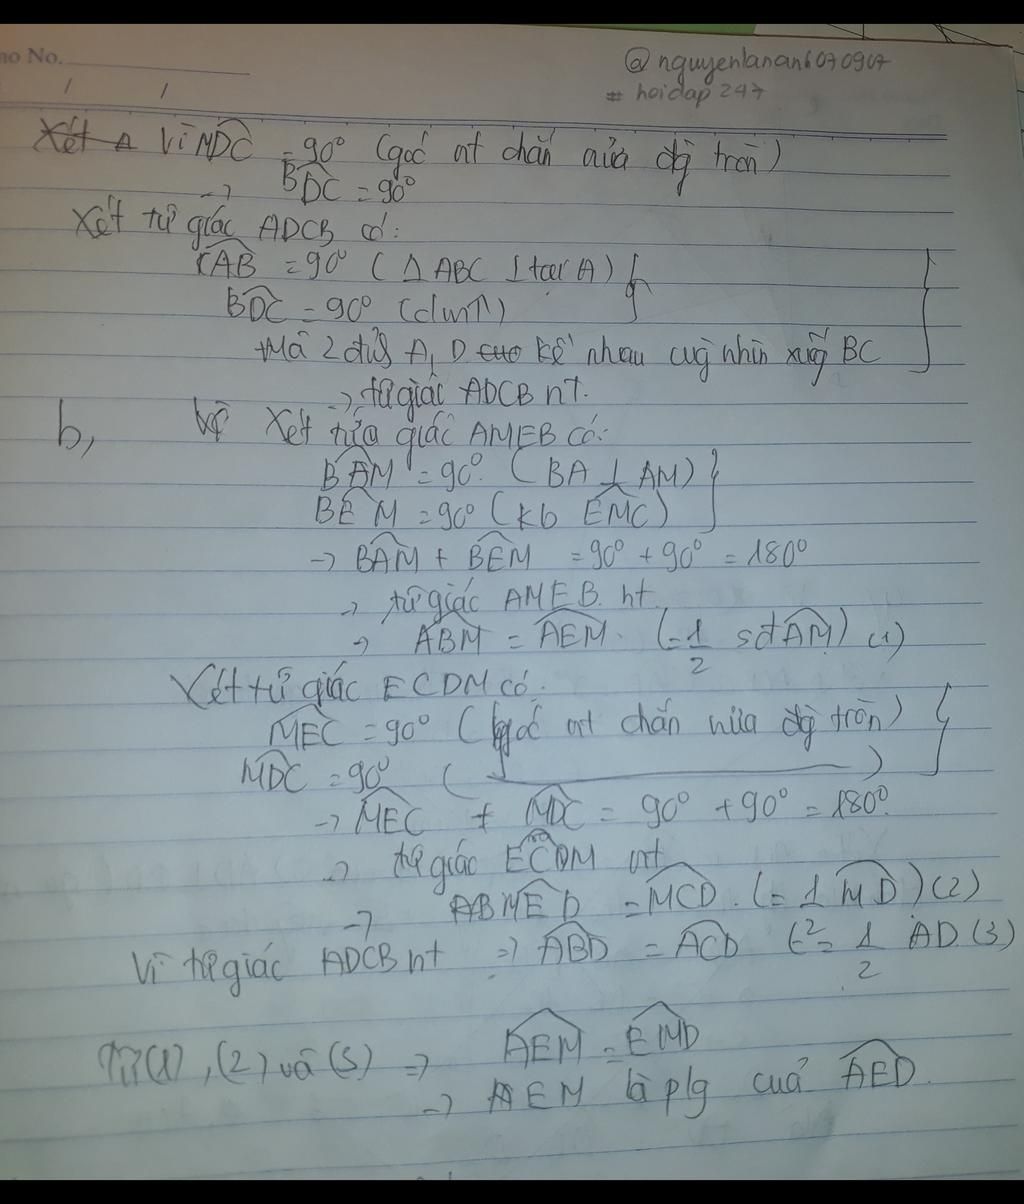 no No.
@nguyenlanan6070907
# hoidap 247
Xét Δ Vì MDC = 90° (góc nt chắn nửa đg tròn)
→ BDC = 90°
Xét tứ giác ADCB có:
CAB = 90° (Δ ABC ⊥ tại A)
BDC = 90° (cmt)
+Mà 2 đỉnh A, D kề nhau cùng nhìn xuống BC
→ tứ giác ADCB nt.
b, Xét tứ giác AMEB có:
BAM = 90°. (BA ⊥ AM)
BEM = 90° (kb EMC)
→ BAM + BEM = 90° + 90° = 180°
→ tứ giác AMEB. nt
→ ABM = AEM. (= 1/2 sđ AM) (1)
Xét tứ giác ECDM có.
MEC = 90° (góc nt chắn nửa đg tròn)
MDC = 90° ( )
→ MEC + MDC = 90° + 90° = 180°.
→ tứ giác ECDM nt
→ MED = MCD. (= 1/2 MD) (2)
Vì tứ giác ADCB nt ⇒ ABD = ACD (= 1/2 AD (3)
Từ (1), (2) và (3) ⇒ AEM = EMD
→ AEM là p/g của AED.